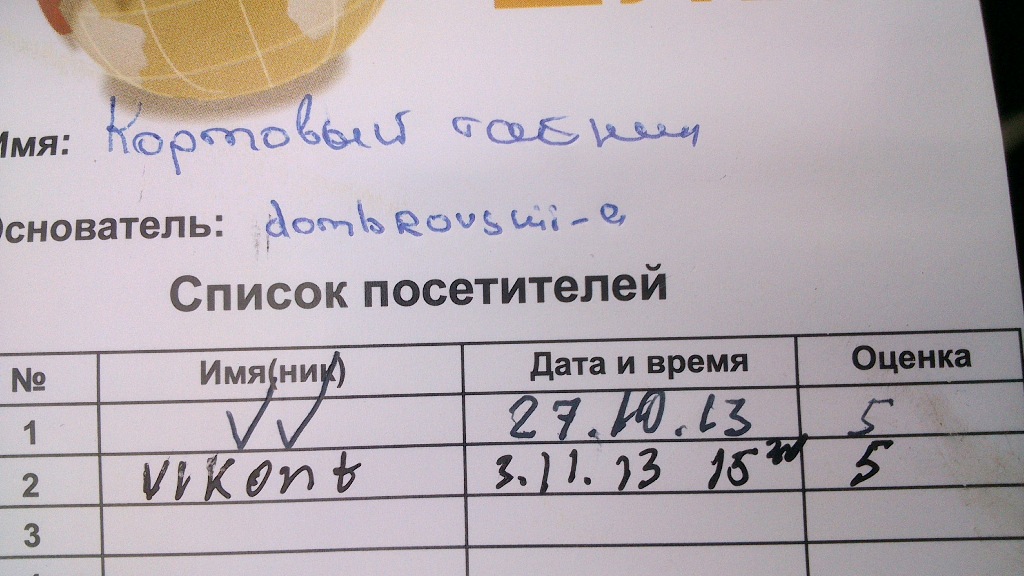 Имя: Кортовый
Основатель: dombrovskii-a
Список посетителей
№ Имя(ник) Дата и время Оценка
1 VV 27.10.13 5
2 VIKont 3.11.13 15 5
3